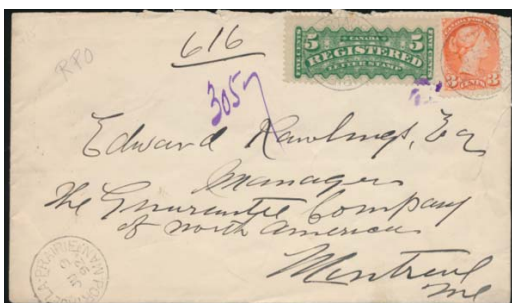 616
CANADA
5 REGISTERED 5
LETTER STAMP
3 CENTS 3
RPO
3057
Edward Rawlings, Esq
Manager
The Guarantee Company
of North America
Montreal